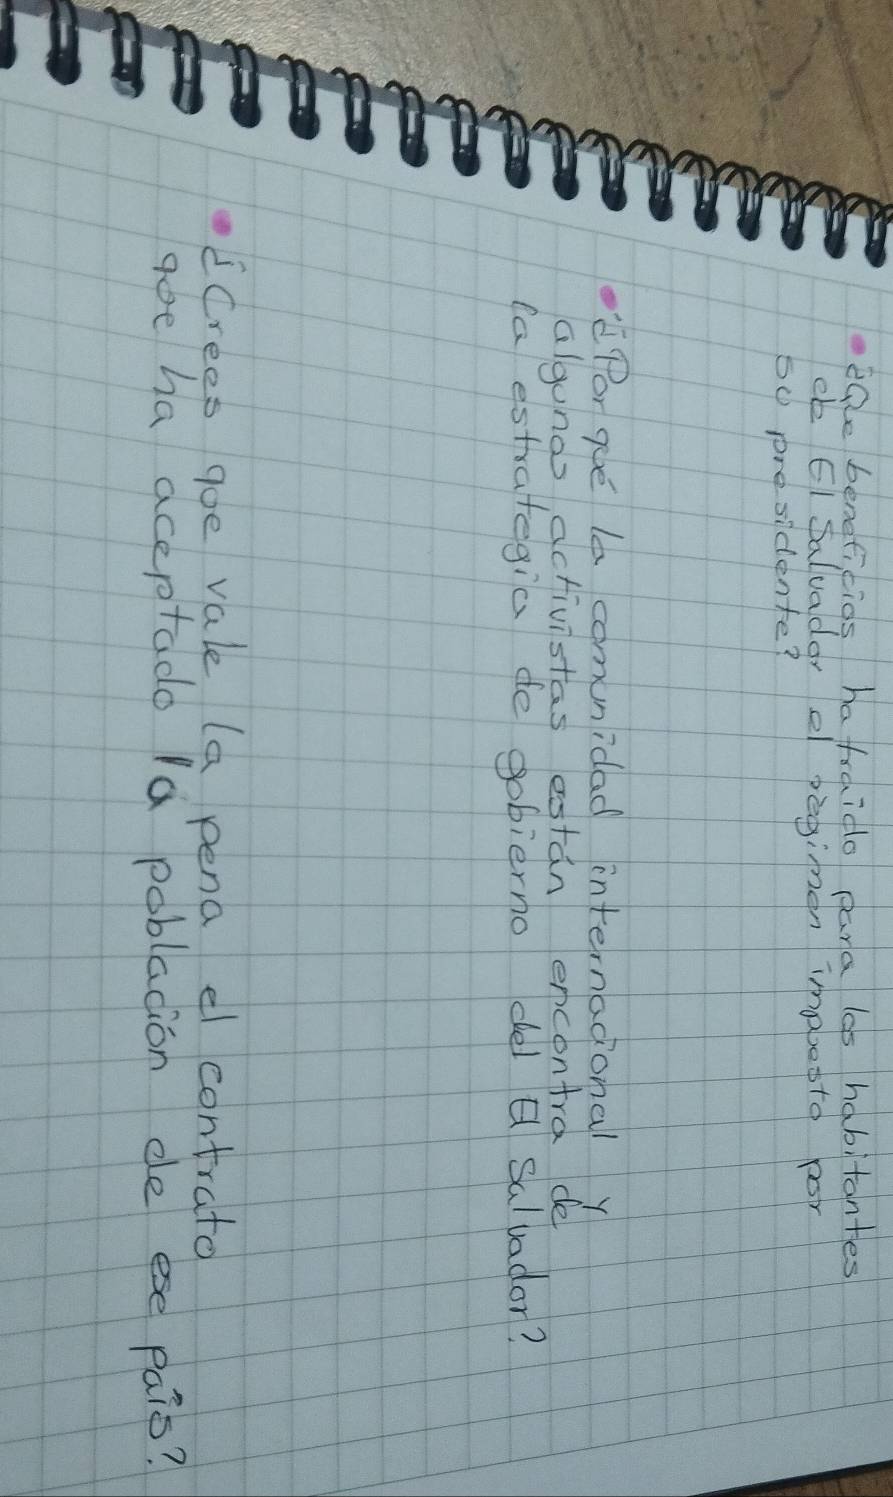 • ¿Que beneficios ha traído para los habitantes
de El Salvador el régimen impuesto por
su presidente?
• ¿Por qué la comunidad internacional y
algunos activistas están encontra de
la estrategia de gobierno del El Salvador?
• ¿Crees que vale la pena el contrato
que ha aceptado la población de ese país?